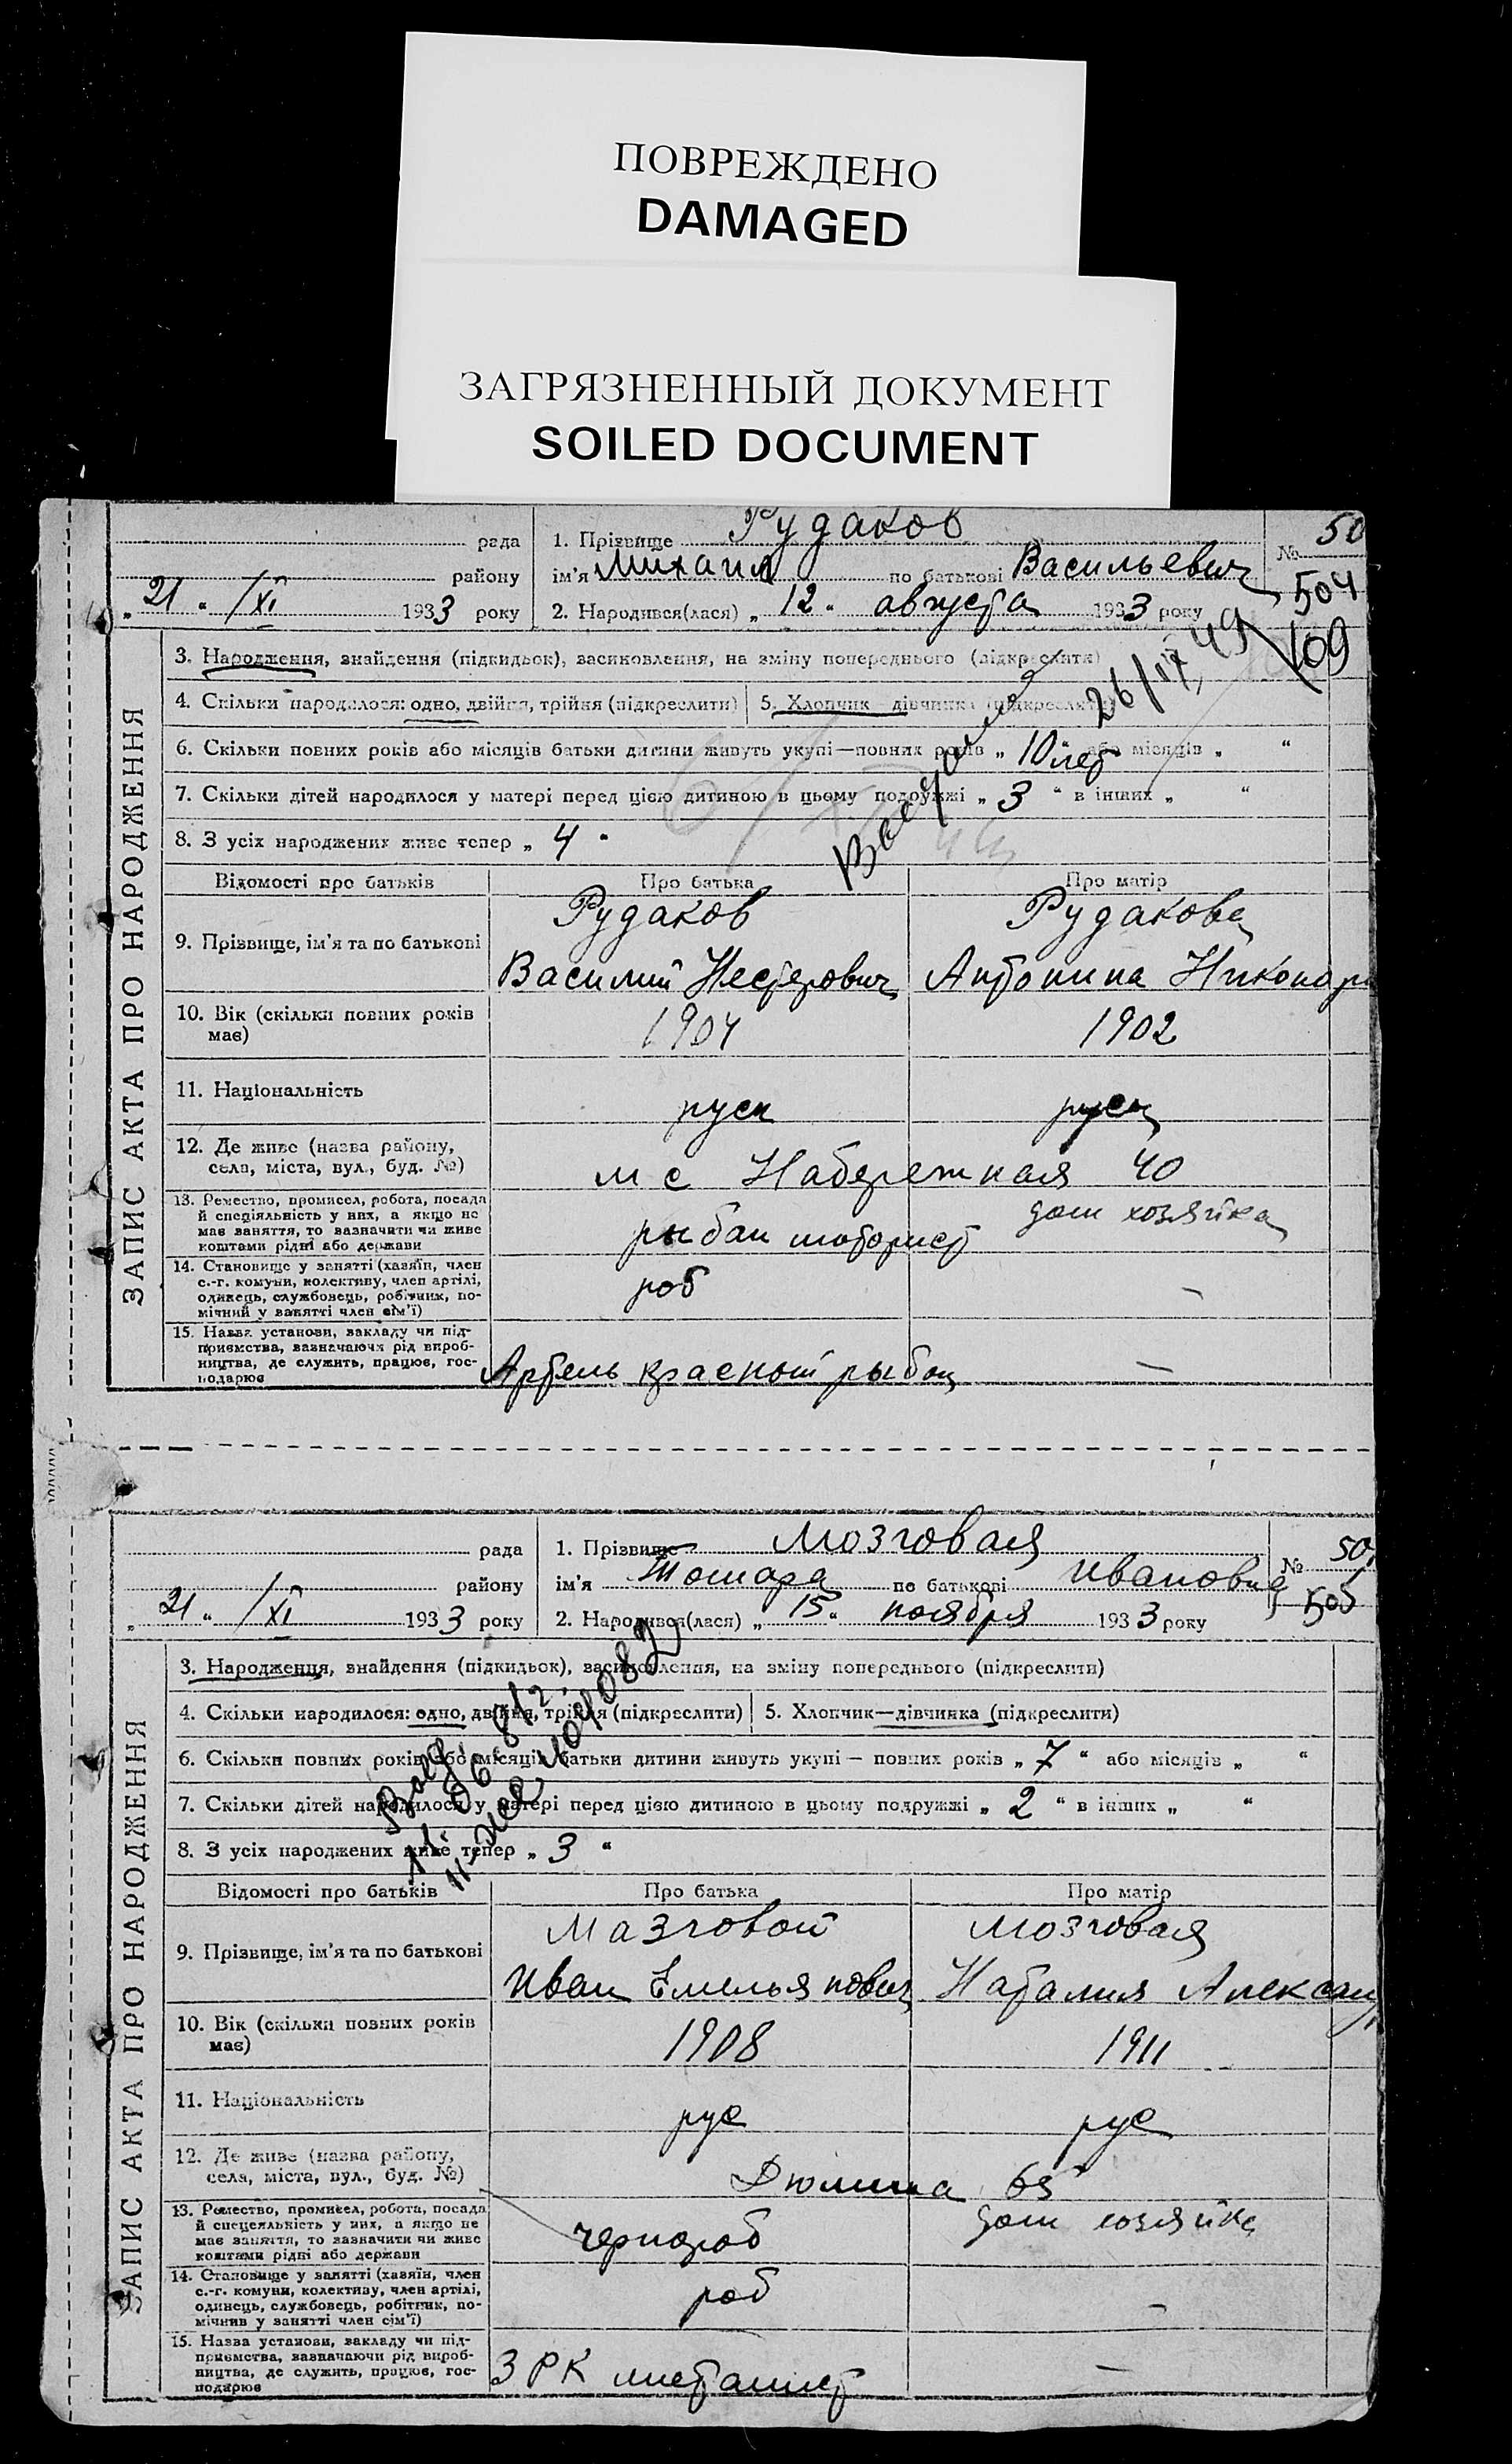 ПОВРЕЖДЕНО
DAMAGED
ЗАГРЯЗНЕННЫЙ ДОКУМЕНТ
SOILED DOCUMENT
ЗАПИС АКТА ПРО НАРОДЖЕННЯ
рада 1. Прізвище Рудаков № 50
району ім'я Михаил по батькові Васильевич 504
„ 21 “ /XI 1933 року 2. Народився(лася) „ 12 “ августа 1933 року
109
3. Народження, знайдення (підкидьок), засиновлення, на зміну попереднього (підкреслити)
26/IV 49
4. Скільки народилося: одно, двійня, трійня (підкреслити) 5. Хлопчик—дівчинка (підкреслити)
6. Скільки повних років або місяців батьки дитини живуть укупі—повних років „ 10 лет “ або місяців „ “
7. Скільки дітей народилося у матері перед цією дитиною в цьому подружжі „ 3 “ в інших „ “
8. З усіх народжених живе тепер „ 4 “
Відомості про батьків Про батька Про матір
9. Прізвище, ім'я та по батькові
Рудаков Рудакова
Василий Нестерович Антонина Никонор
10. Вік (скільки повних років має) 1904 1902
11. Національність руск руск
12. Де живе (назва району, села, міста, вул., буд. №) м с Набережная 40
13. Ремество, промисел, робота, посада й спеціяльність у них, а якщо не має заняття, то зазначити чи живе коштами рідні або держави
рыбак моторист дом хозяйка
14. Становище у занятті (хазяїн, член с.-г. комуни, колективу, член артілі, одинець, службовець, робітник, помічний у занятті член сім'ї)
роб —
15. Назва установи, закладу чи підприємства, зазначаючи рід виробництва, де служить, працює, господарює
Артель красной рыбак —
ЗАПИС АКТА ПРО НАРОДЖЕННЯ
рада 1. Прізвище Мозговая № 50
району ім'я Томара по батькові Ивановна 505
„ 21 “ /XI 1933 року 2. Народився(лася) „ 15 “ ноября 1933 року
3. Народження, знайдення (підкидьок), засиновлення, на зміну попереднього (підкреслити)
4. Скільки народилося: одно, двійня, трійня (підкреслити) 5. Хлопчик—дівчинка (підкреслити)
6. Скільки повних років або місяців батьки дитини живуть укупі — повних років „ 7 “ або місяців „ “
7. Скільки дітей народилося у матері перед цією дитиною в цьому подружжі „ 2 “ в інших „ “
8. З усіх народжених живе тепер „ 3 “
Відомості про батьків Про батька Про матір
9. Прізвище, ім'я та по батькові
Мазговой Мозговая
Иван Емельянович Наталия Алексан
10. Вік (скільки повних років має) 1908 1911
11. Національність рус рус
12. Де живе (назва району, села, міста, вул., буд. №) Дюмина 65
13. Ремество, промисел, робота, посада й спецеяльність у них, а якщо не має заняття, то зазначити чи живе коштами рідні або держави
чернораб дом хозяйка
14. Становище у занятті (хазяїн, член с.-г. комуни, колективу, член артілі, одинець, службовець, робітник, помічнив у занятті член сім'ї)
роб —
15. Назва установи, закладу чи підприємства, зазначаючи рід виробництва, де служить, працює, господарює
ЗРК —